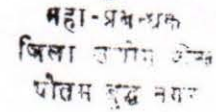 महा-प्रबन्धक
जिला उद्योग केन्द्र
गौतम बुद्ध नगर